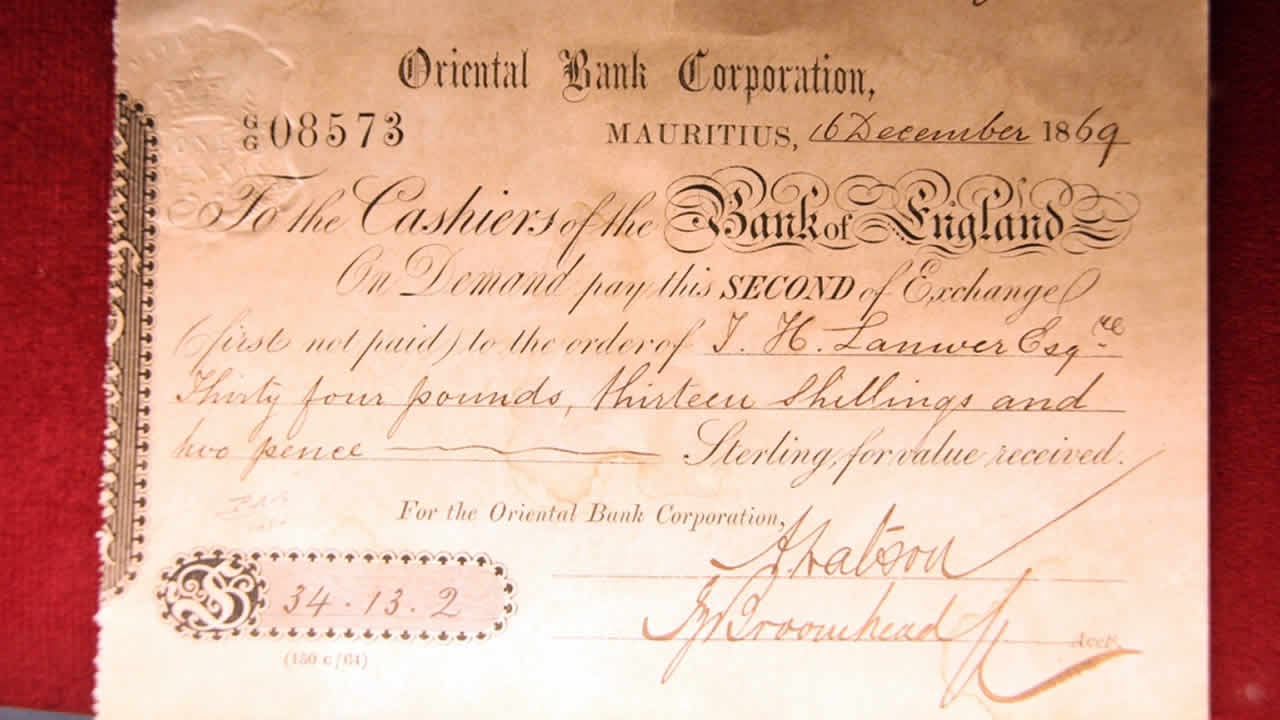 Oriental Bank Corporation,
G/G 08573 MAURITIUS, 16 December 1869
To the Cashiers of the Bank of England
On Demand pay this SECOND of Exchange
(first not paid) to the order of J. H. Lanwer Esqre
Thirty four pounds, thirteen Shillings and
two pence Sterling, for value received.
For the Oriental Bank Corporation,
Watson
£ 34.13.2
Broomhead
Acct.
(150 c/64)